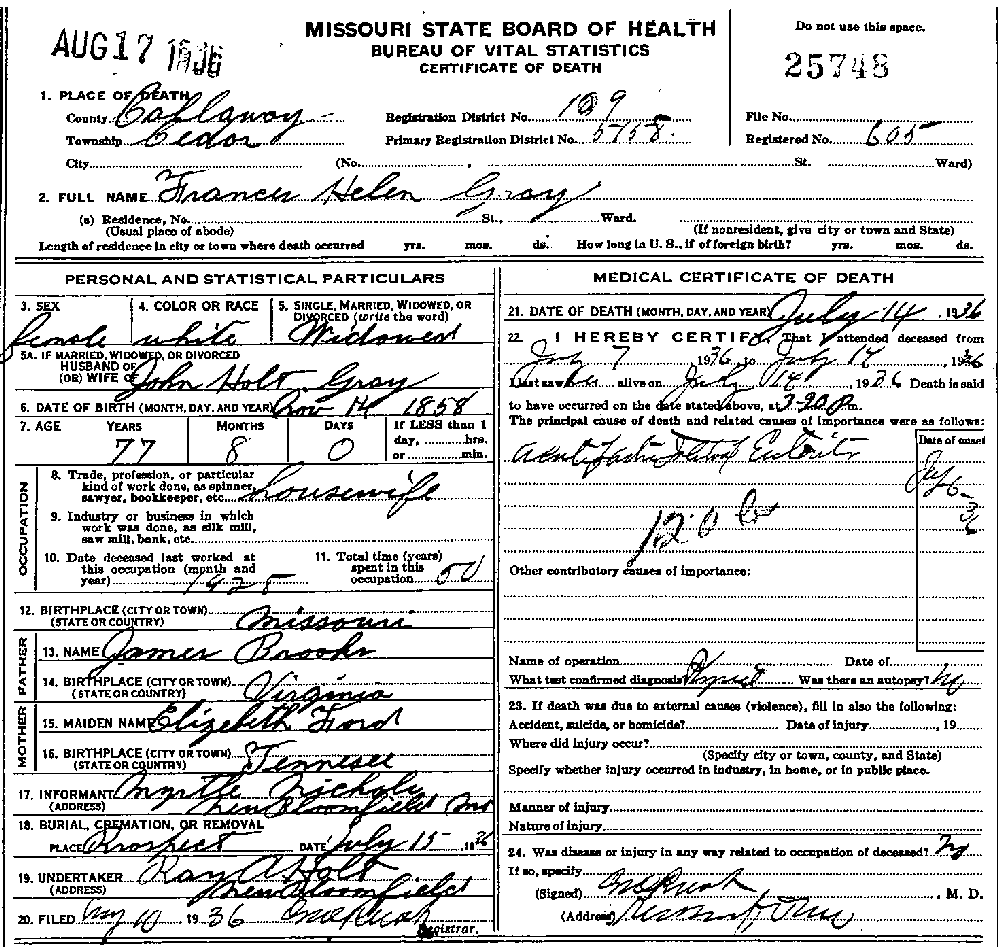 AUG 17 1936
MISSOURI STATE BOARD OF HEALTH
BUREAU OF VITAL STATISTICS
CERTIFICATE OF DEATH
Do not use this space.
25748
1. PLACE OF DEATH
County Callaway
Township Cedar
City (No. , St. Ward)
Registration District No. 109
Primary Registration District No. 5158.
File No.
Registered No. 605
2. FULL NAME Frances Helen Gray
(a) Residence, No. St., Ward.
(Usual place of abode) (If nonresident, give city or town and State)
Length of residence in city or town where death occurred yrs. mos. ds. How long in U. S., if of foreign birth? yrs. mos. ds.
PERSONAL AND STATISTICAL PARTICULARS
3. SEX female
4. COLOR OR RACE white
5. SINGLE, MARRIED, WIDOWED, OR
DIVORCED (write the word)
Widowed
5A. IF MARRIED, WIDOWED, OR DIVORCED
HUSBAND OF
(OR) WIFE OF John Holt Gray
6. DATE OF BIRTH (MONTH, DAY, AND YEAR) Nov 14 1858
7. AGE YEARS MONTHS DAYS If LESS than 1
day, hrs.
or min.
77 8 0
OCCUPATION
8. Trade, profession, or particular
kind of work done, as spinner,
sawyer, bookkeeper, etc. housewife
9. Industry or business in which
work was done, as silk mill,
saw mill, bank, etc.
10. Date deceased last worked at
this occupation (month and
year) 1925
11. Total time (years)
spent in this
occupation 50
12. BIRTHPLACE (CITY OR TOWN)
(STATE OR COUNTRY) Missouri
FATHER
13. NAME James Brooks
14. BIRTHPLACE (CITY OR TOWN)
(STATE OR COUNTRY) Virginia
MOTHER
15. MAIDEN NAME Elizabeth Ford
16. BIRTHPLACE (CITY OR TOWN)
(STATE OR COUNTRY) Tennesee
17. INFORMANT Myrtle Nichols
(ADDRESS) New Bloomfield Mo
18. BURIAL, CREMATION, OR REMOVAL
PLACE Prospect DATE July 15 1936
19. UNDERTAKER Ray A Holt
(ADDRESS) New Bloomfield
20. FILED Aug 10 1936
Registrar.
MEDICAL CERTIFICATE OF DEATH
21. DATE OF DEATH (MONTH, DAY, AND YEAR) July 14, 1936
22. I HEREBY CERTIFY, That I attended deceased from
July 7 1936, to July 14 1936
I last saw her alive on July 14, 1936 Death is said
to have occurred on the date stated above, at 3-90 P.m.
The principal cause of death and related causes of importance were as follows:
Date of onset
Acute
July 6-
36
120 b
Other contributory causes of importance:
Name of operation Date of
What test confirmed diagnosis? Was there an autopsy? No
23. If death was due to external causes (violence), fill in also the following:
Accident, suicide, or homicide? Date of injury , 19
Where did injury occur?
(Specify city or town, county, and State)
Specify whether injury occurred in industry, in home, or in public place.
Manner of injury
Nature of injury
24. Was disease or injury in any way related to occupation of deceased? No
If so, specify
(Signed) , M. D.
(Address)